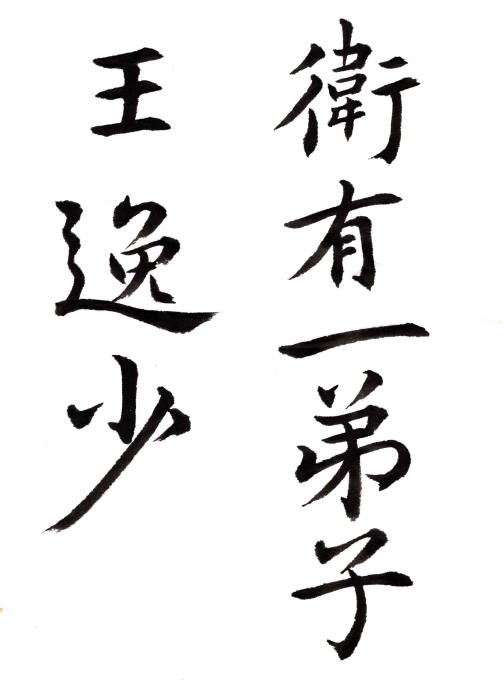 衛有一弟子
王逸少